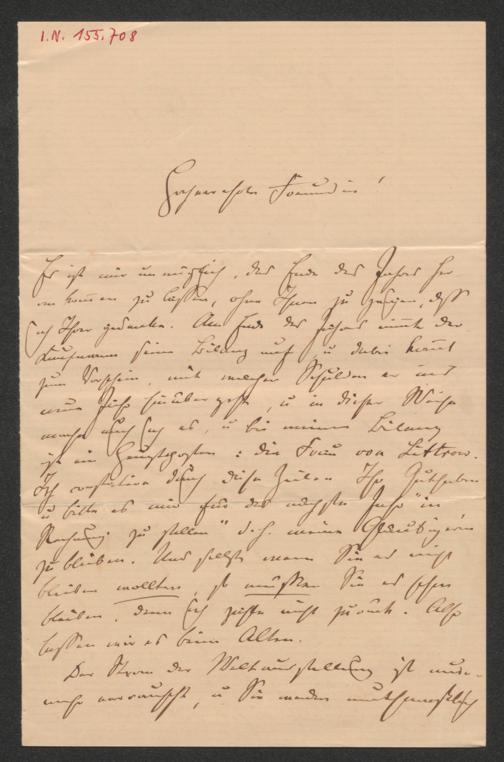 I.N. 155.708
Hochverehrte Freundin!
Es ist mir unmöglich, das Ende des Jahres her
an kommen zu lassen, ohne Ihnen zu zeigen, daß
ich Ihrer gedenke. Am Ende des Jahres nimmt der
Kaufmann seine Bilanz auf, u dabei kommt
zum Vorschein, mit welcher Schulden er ins
neue Jahr hinüber geht, u in dieser Weise
mache auch ich es, u bei meiner Bilanz
ist ein Hauptposten: die Frau von Littrow.
Ich constatire durch diese Zeilen Ihr Guthaben
u bitte es mir für das nächste Jahr "in
Rechnung zu stellen" d. h. meine Gläubigerin
zu bleiben. Und selbst wenn Sie es nicht
bleiben wollten, so müssen Sie es schon
bleiben, denn ich zahle nicht zurück. Also
lassen wir es beim Alten.
Der Strom der Weltausstellung ist nun-
mehr verrauscht, u Sie werden muthmaßlich